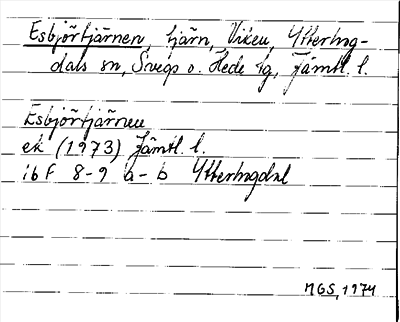 Esbjörtjärnen, tjärn, Viken, Ytterhog-
dals sn, Svegs o. Hede tg, Jämtl. l.
Esbjörtjärnen
ek (1973) Jämtl. l.
16F 8-9 a-b Ytterhogdal
MGS, 1974